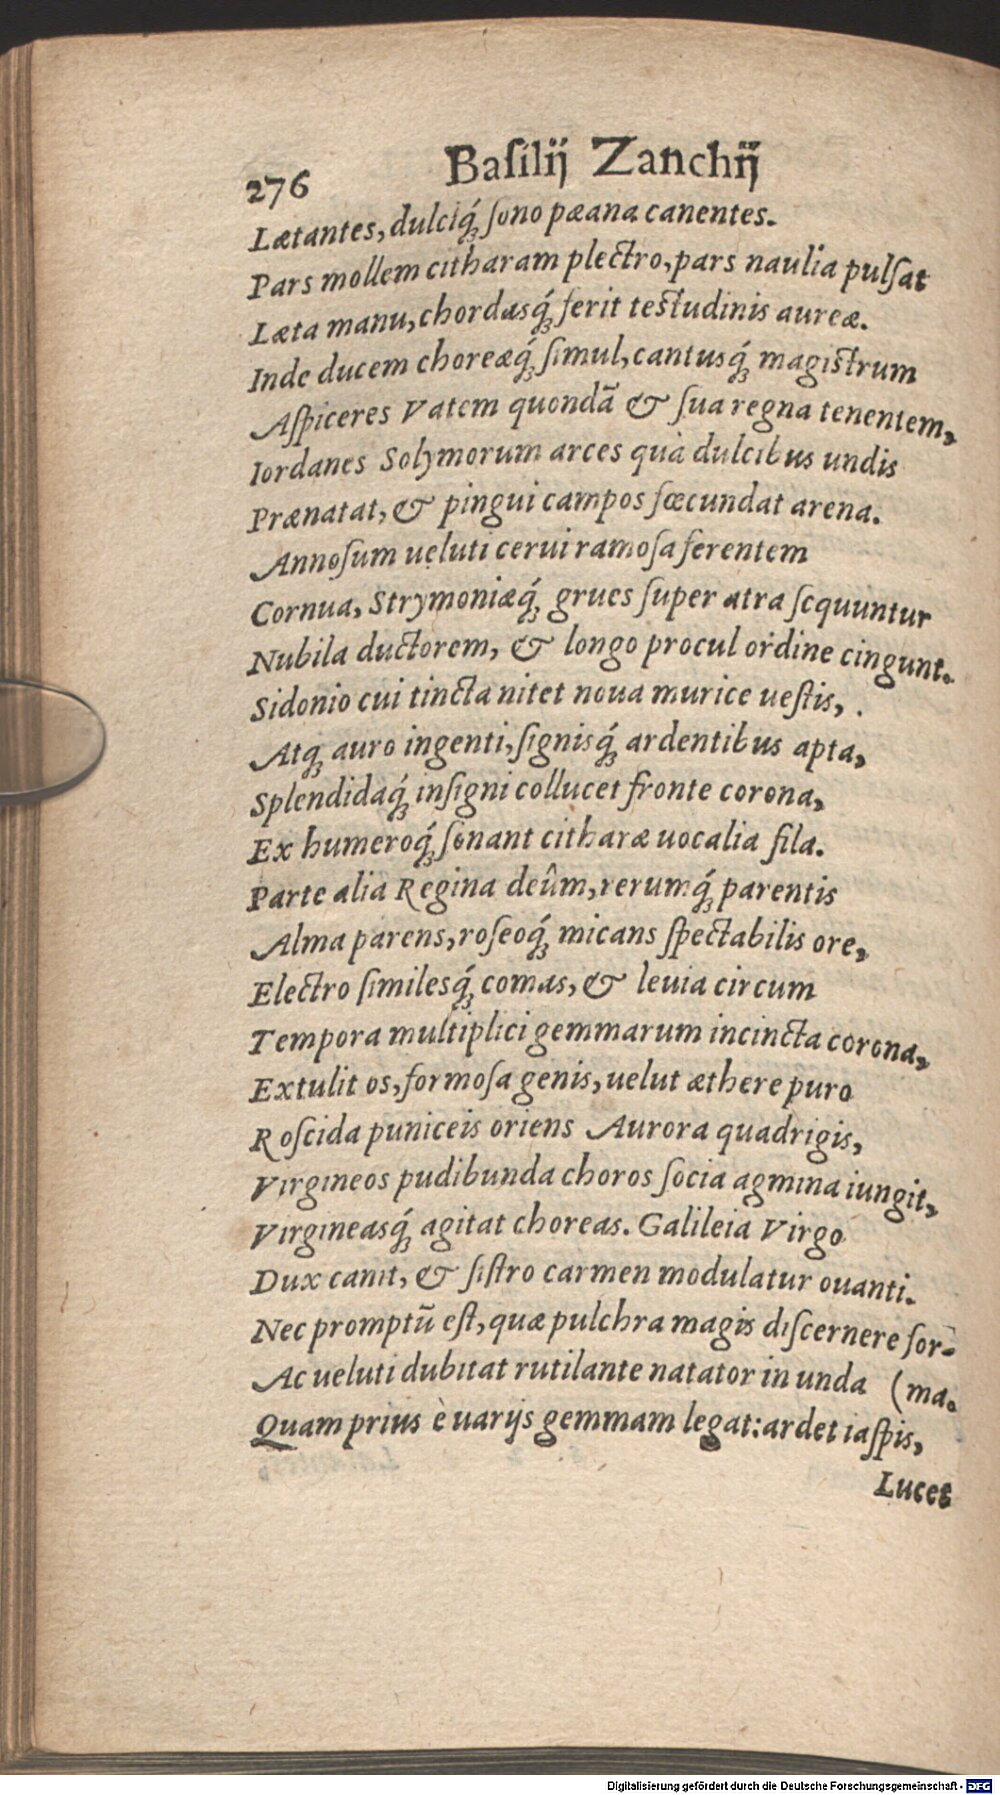 276 Baſilij Zanchij
Lætantes, dulciq́; ſono pæana canentes.
Pars mollem citharam plectro, pars naulia pulſat
Læta manu, chordasq́; ferit teſtudinis aureæ.
Inde ducem choreæq́; ſimul, cantusq́; magiſtrum
Aſpiceres Vatem quondā & ſua regna tenentem,
Iordanes Solymorum arces quà dulcibus undis
Prænatat, & pingui campos fœcundat arena.
Annoſum ueluti cerui ramoſa ferentem
Cornua, Strymoniæq́; grues ſuper atra ſequuntur
Nubila ductorem, & longo procul ordine cingunt.
Sidonio cui tincta nitet noua murice ueſtis,
Atq; auro ingenti, ſignisq́; ardentibus apta,
Splendidaq́; inſigni collucet fronte corona,
Ex humeroq́; ſonant citharæ uocalia fila.
Parte alia Regina deûm, rerumq́; parentis
Alma parens, roſeoq́; micans ſpectabilis ore,
Electro ſimilesq́; comas, & leuia circum
Tempora multiplici gemmarum incincta corona,
Extulit os, formoſa genis, uelut æthere puro
Roſcida puniceis oriens Aurora quadrigis,
Virgineos pudibunda choros ſocia agmina iungit,
Virgineasq́; agitat choreas. Galileia Virgo
Dux canit, & ſiſtro carmen modulatur ouanti.
Nec promptū eſt, quæ pulchra magis diſcernere for-
Ac ueluti dubitat rutilante natator in unda (ma.
Quam prius è uarijs gemmam legat: ardet iaſpis,
Lucet
Digitalisierung gefördert durch die Deutsche Forschungsgemeinschaft - DFG